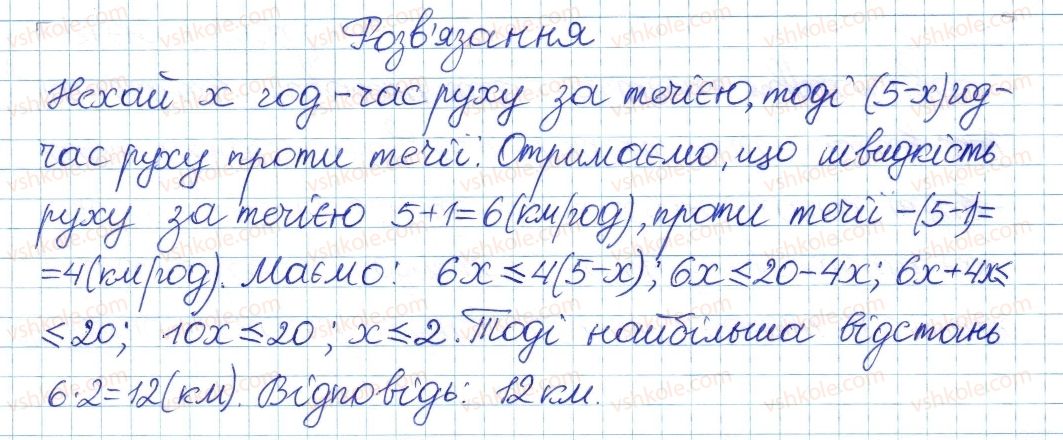 Розв'язання
Нехай x год - час руху за течією, тоді (5-x) год -
час руху проти течії. Отримаємо, що швидкість
руху за течією 5+1=6 (км/год), проти течії -(5-1)=
=4 (км/год). Маємо: 6x≤4(5-x); 6x≤20-4x; 6x+4x≤
≤20; 10x≤20; x≤2. Тоді найбільша відстань
6·2=12 (км). Відповідь: 12 км.
vshkole.com